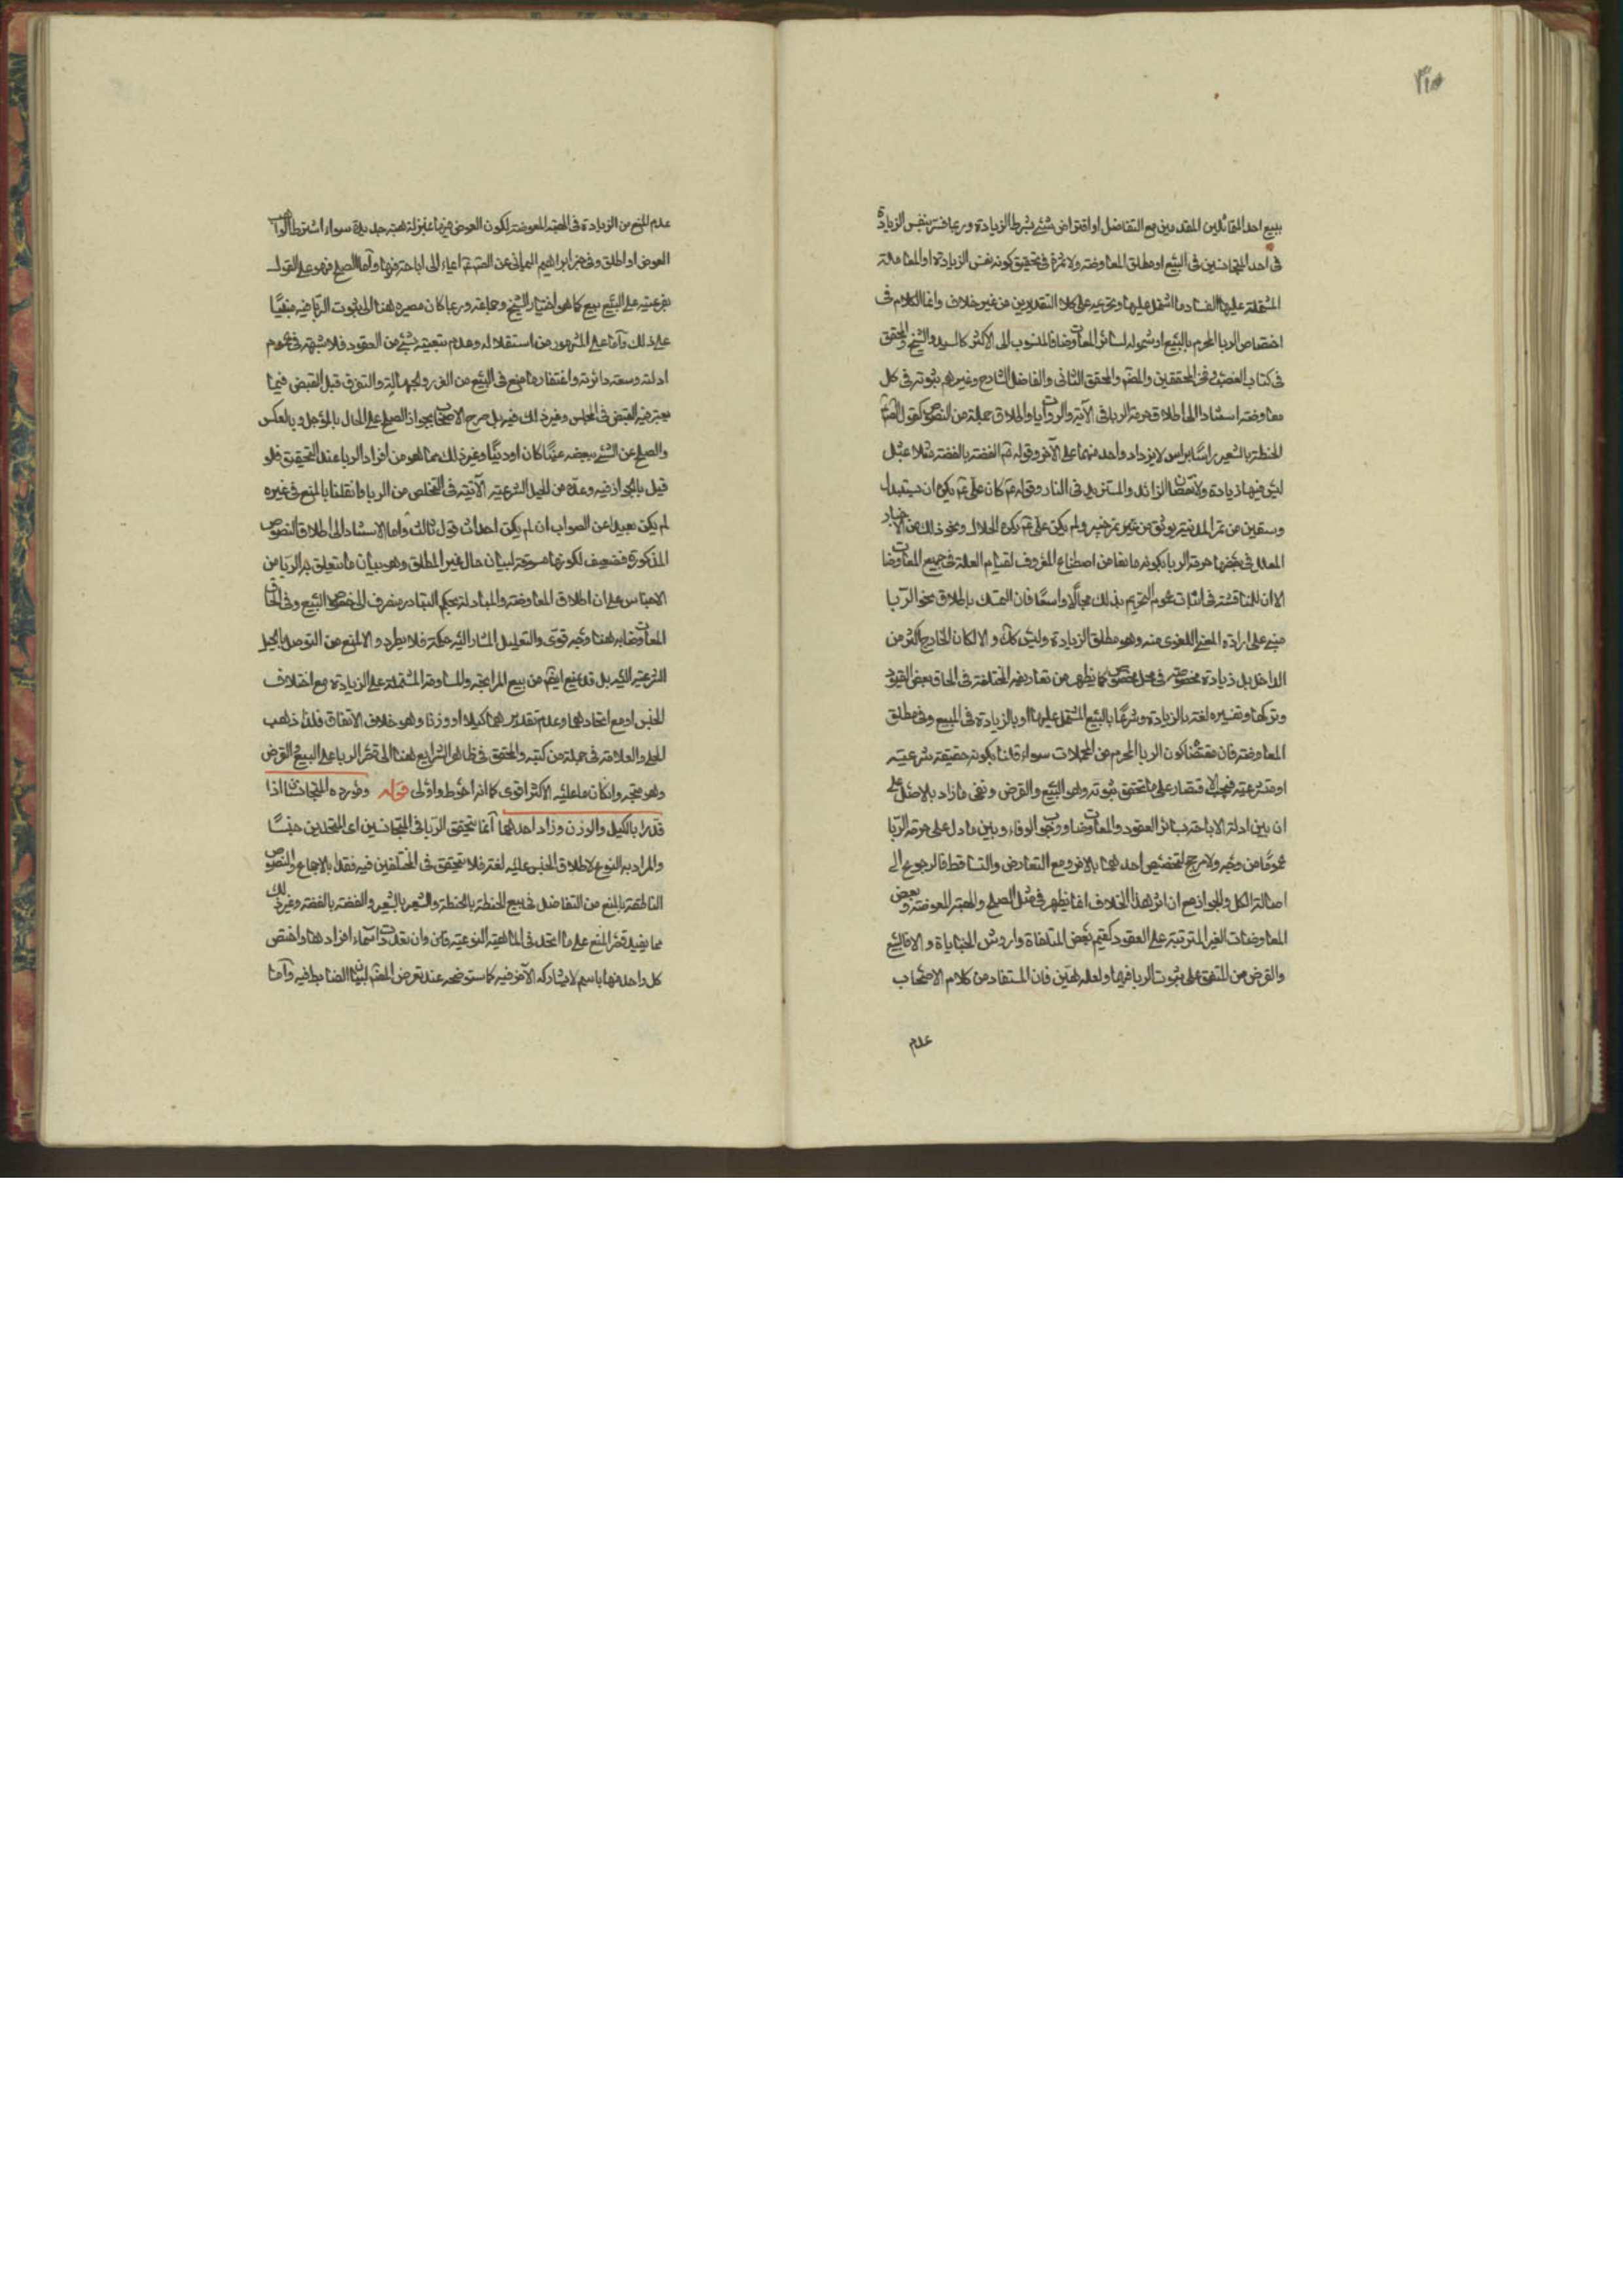 ٣١٥
ببيع احد المتماثلين المقدرين مع التفاضل او اقتراض شئ بشرط الزيادة وربما فسر بنفس الزيادة
فى احد المتجانسين فى البيع او مطلق المعاوضة ولا ثمرة فى تحقيق كونه نفس الزيادة او المعاملة
المشتملة عليها لفساد ما اشتمل عليها وتحريمه على كلا التقديرين من غير خلاف وانما الكلام فى
اختصاص الربا المحرم بالبيع او شموله لسائر المعاوضات فالمنسوب الى الاكثر كالسيد والشيخ والمحقق
فى كتاب الغصب وفخر المحققين والمص والمحقق الثانى والفاضل الشارح وغيرهم ثبوته فى كل
معاوضة استنادا الى اطلاق حرمة الربا فى الآية والروايات واطلاق جملة من النصوص كقول الص
الحنطة بالشعير راسا براس لا يزداد واحد منهما على الآخر وقوله ع الفضة بالفضة مثلا بمثل
ليس فيها زيادة ولا نقصان الزائد والمستزيد فى النار وقوله ع كان على ع يكره ان يستبدل
وسقين من تمر المدينة بوسق من تمر خيبر ولم يكن على ع يكره الحلال ونحو ذلك من الاخبار
المعلل فى بعضها حرمة الربا بكونه مانعا من اصطناع المعروف لقيام العلة فى جميع المعاوضات
الا ان للمناقشة فى اثبات عموم التحريم بذلك مجالا واسعا فان التمسك باطلاق نحو الربا
مبنى على ارادة المعنى اللغوى منه وهو مطلق الزيادة وليس كك والا لكان الخارج اكثر من
الداخل بل زيادة مخصوصة فى محل مخصوص كما يظهر من تعاريفه المختلفة فى الحاق بعض القيود
وتركها وتفسيره لغة بالزيادة وشرعا بالبيع المشتمل عليها او بالزيادة فى المبيع وفى مطلق
المعاوضة فان مقتضا كون الربا المحرم من المجملات سواء قلنا بكونه حقيقة شرعية
او متشرعية فيجب الاقتصار على ما تحقق ثبوته وهو البيع والقرض ونفى ما زاد بالاصل على
ان بين ادلة الاباحة سائر العقود والمعاوضات ووجوب الوفاء وبين ما دل على حرمة الربا
عموما من وجه ولا مرجح لتخصيص احدهما بالاخر ومع التعارض والتساقط فالرجوع الى
اصالة الحل والجواز مع ان اثر هذا الخلاف انما يظهر فى مثل الصلح والهبة المعوضة وبعض
المعاوضات الغير المترتبة على العقود كقيم بعض المتلفات واروش الجنايات والا فالبيع
والقرض من المتفق على ثبوت الربا فيهما ولعله لهين فان المستفاد من كلام الاصحاب
عدم
عدم المنع من الزيادة فى الهبة المعوضة لكون العوض فيها بمنزلة هبة جديدة سواء اشترط الواهب
العوض او اطلق وفى خبر ابراهيم اليمانى عن الص ع ايماء الى اباحته فيها واما الصلح فهو على القول
بفرعيته على البيع بيع كما هو اختيار الشيخ وجماعة وربما كان مصيره هنا الى ثبوت الربا فيه مبنيا
على ذلك واما على المشهور من استقلاله وعدم تبعيته بشئ من العقود فلا شبهة فى عموم
ادلته وسعة دائرته واغتفار ما منع فى البيع من الغرر والجهالة والتفرق قبل القبض فيما
يعتبر فيه القبض فى المجلس وغير ذلك فيه بل صرح الاصحاب بجواز الصلح على الحال بالمؤجل وبالعكس
والصلح عن الشئ ببعضه عينا كان او دينا وغير ذلك مما هو من افراد الربا عند التحقيق فلو
قيل بالجواز فيه وعده من الحيل الشرعية الآتية فى التخلص من الربا وانقلنا بالمنع فى غيره
لم يكن بعيدا عن الصواب ان لم يكن احداث قول ثالث واما الاستناد الى اطلاق النصوص
المذكورة فضعيف لكونها مسوقة لبيان حال غير المطلق وهو بيان ما يتعلق به الربا من
الاجناس على ان اطلاق المعاوضة والمبادلة بحكم التبادر منصرف الى خصوص البيع وفى الحاق
المعاوضات به هنا وجه قوى والتعليل المشار اليه حكمة فلا يطرد والا لمنع من التوصل بالحيل
الشرعية اليه بل قد يمنع ايضا من بيع المرابحة والمساومة المشتملة على الزيادة مع اختلاف
الجنس او مع اتحادهما وعدم تقديرهما كيلا او وزنا وهو خلاف الاتفاق فلذا ذهب
الحلى والعلامة فى جملة من كتبه والمحقق فى ظاهر الشرايع هنا الى قصر الربا على البيع والقرض
وهو متجه وانكان ما عليه الاكثر اقوى كما انه احوط واولى قوله ومورده المتجانسان اذا
قدرا بالكيل والوزن وزاد احدهما انما يتحقق الربا فى المتجانسين اى المتحدين جنسا
والمراد به النوع لاطلاق الجنس عليه لغة فلا يتحقق فى المختلفين فيه فقدا بالاجماع والنصوص
الناطقة بالمنع من التفاضل فى بيع الحنطة بالحنطة والشعير بالشعير والفضة بالفضة وغير ذلك
مما يفيد قصر المنع على ما اتحد فى الماهية النوعية فان وان تعددت اسماء افرادها واختص
كل واحد منها باسم لا يشاركه الآخر فيه كما ستوضحه عند تعرض المص لبيان الضابط فيه واما